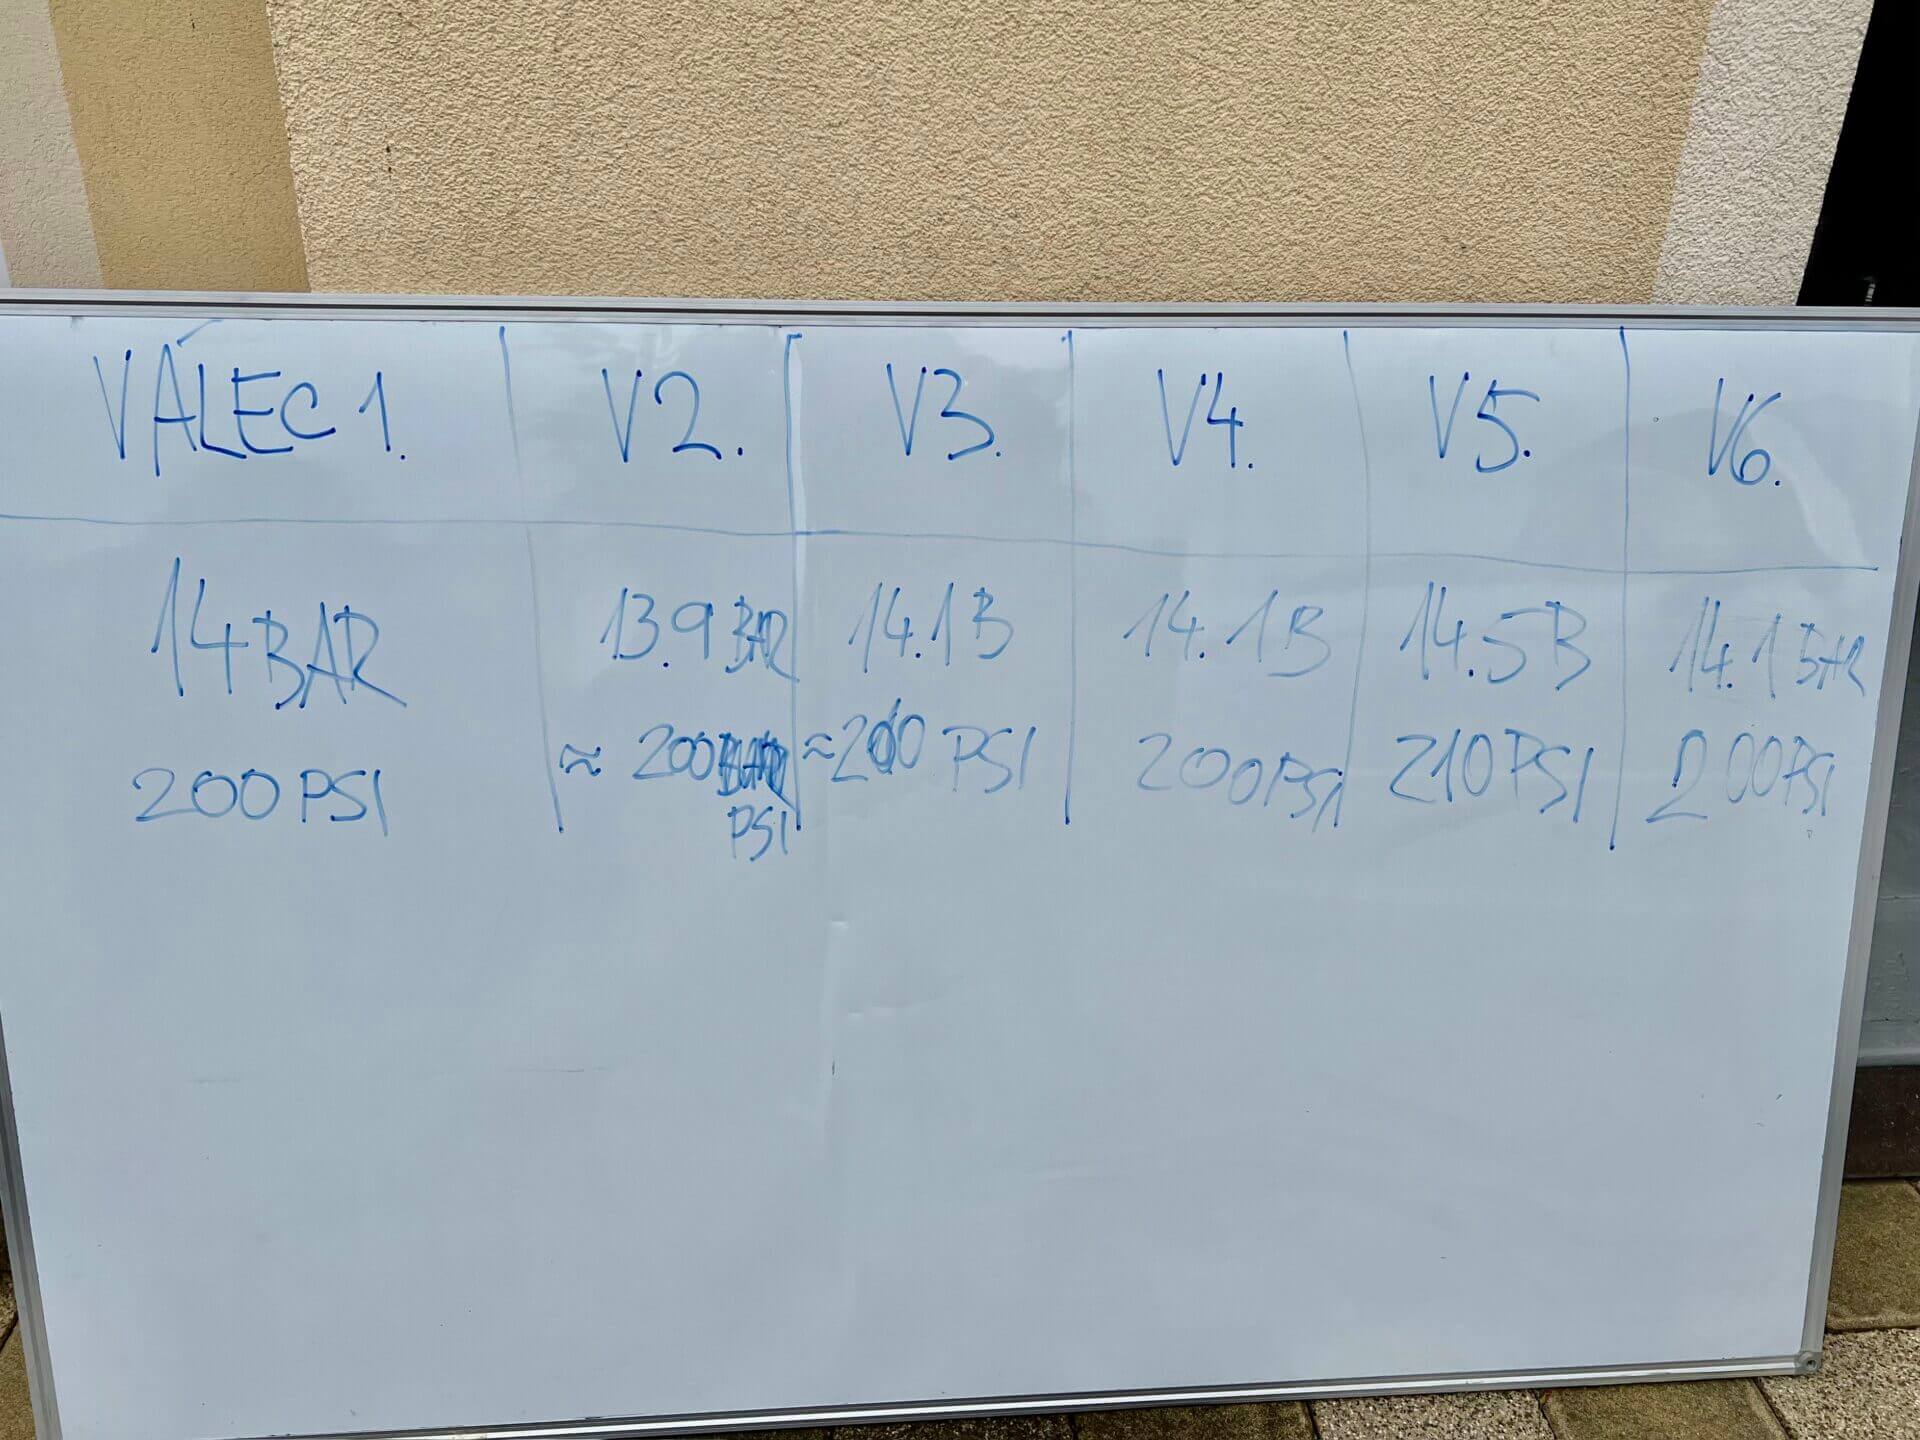 VÁLEC 1. V2. V3. V4. V5. V6.
14 BAR 13.9 BAR 14.1 B 14.1 B 14.5 B 14.1 BAR
200 PSI ≈ 200 ≈ 200 PSI 200 PSI 210 PSI 200 PSI
PSI